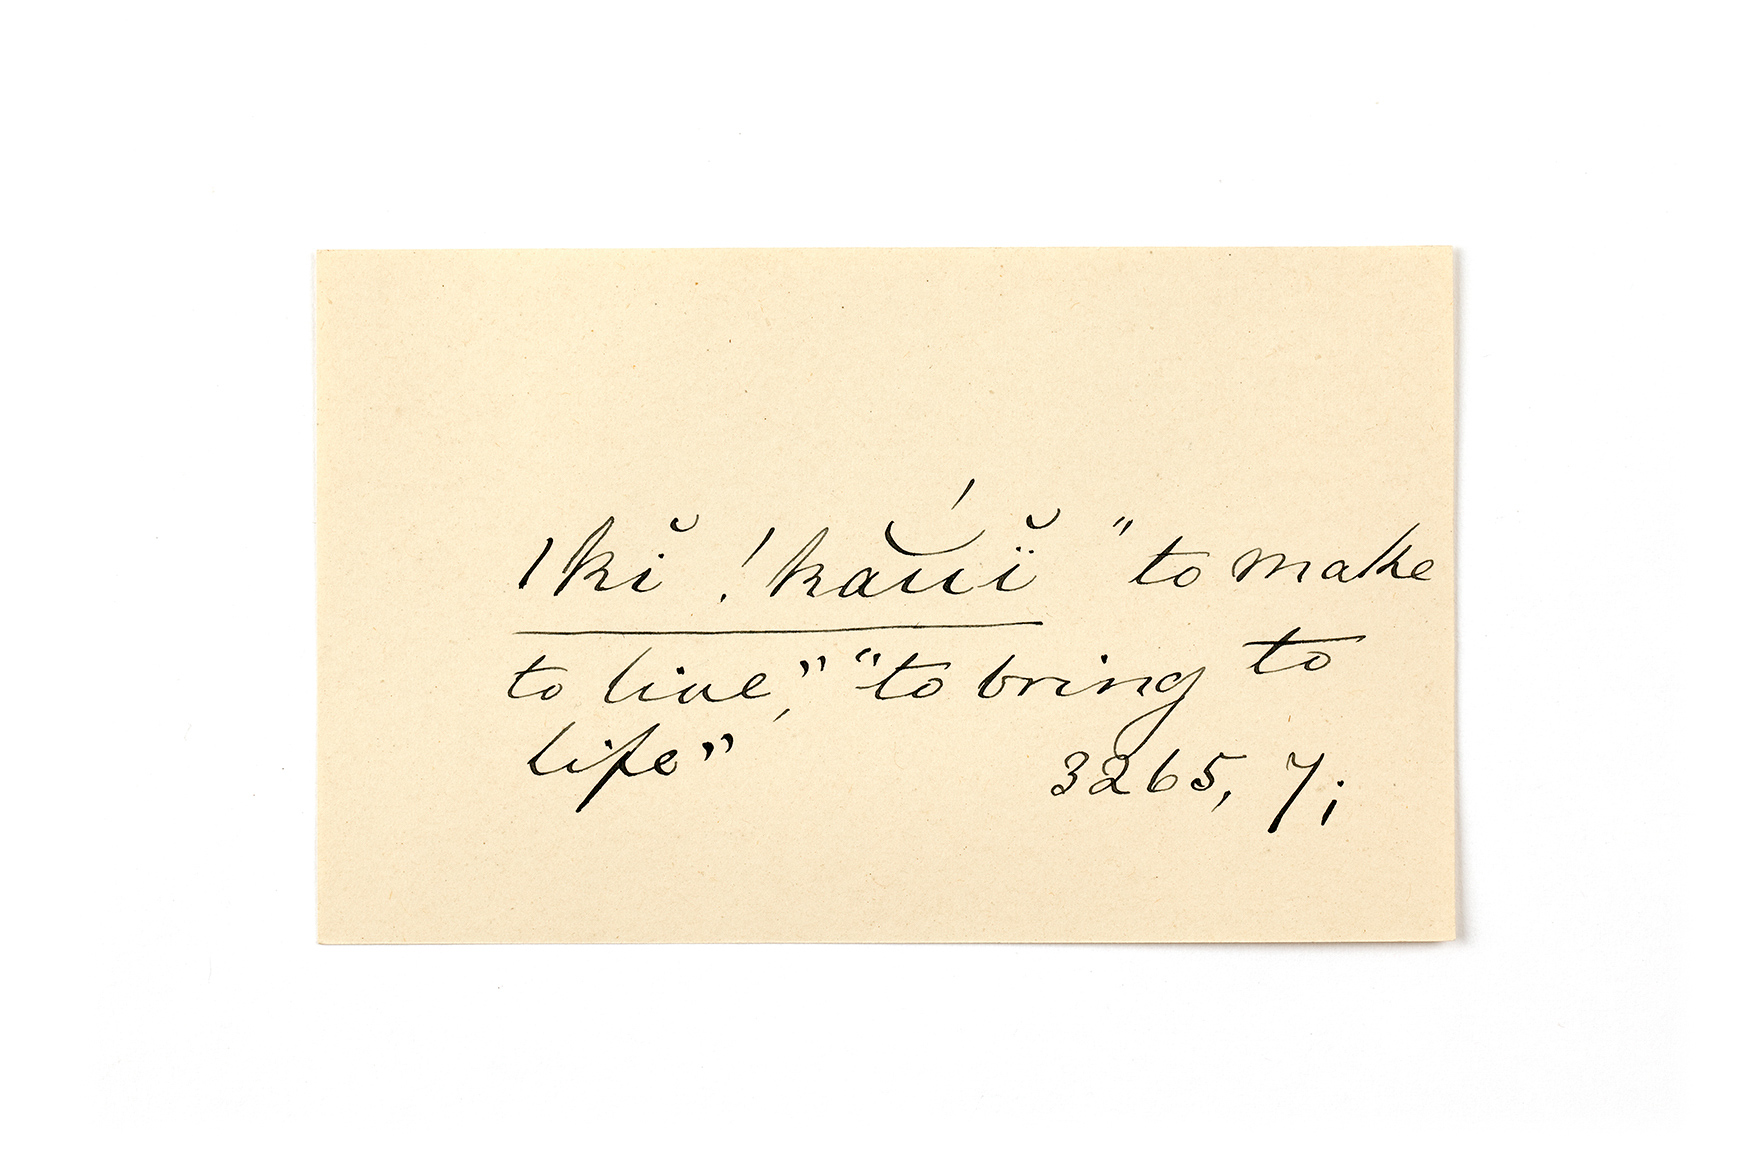 |kĭ !kaú̯ı̆̈ "to make
to live," "to bring to
life"
3265, 7;